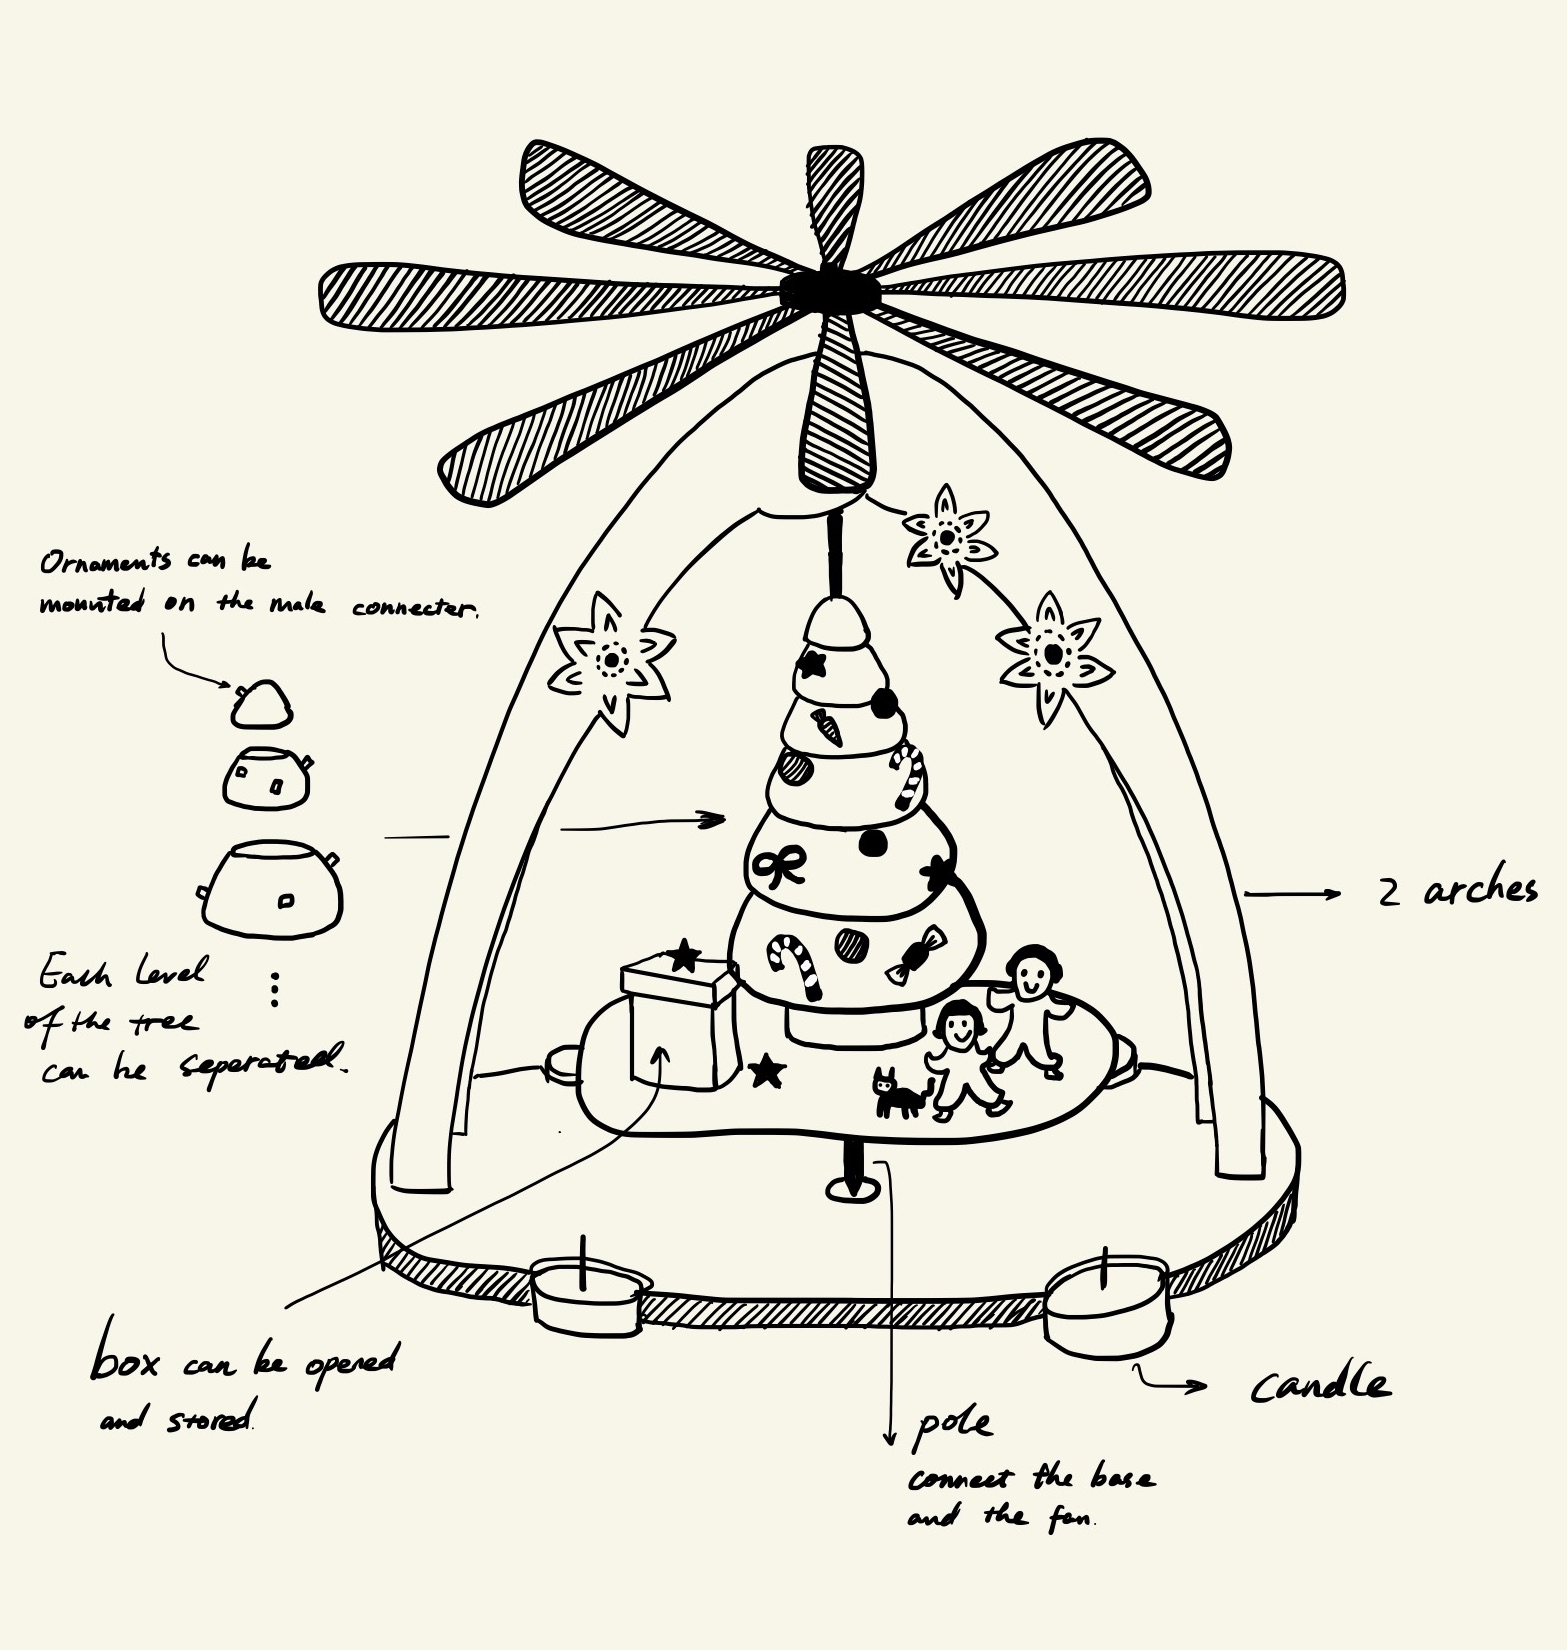 Ornaments can be
mounted on the male connecter.
Each level
of the tree
can be seperated.
2 arches
box can be opened
and stored.
candle
pole
connect the base
and the fan.